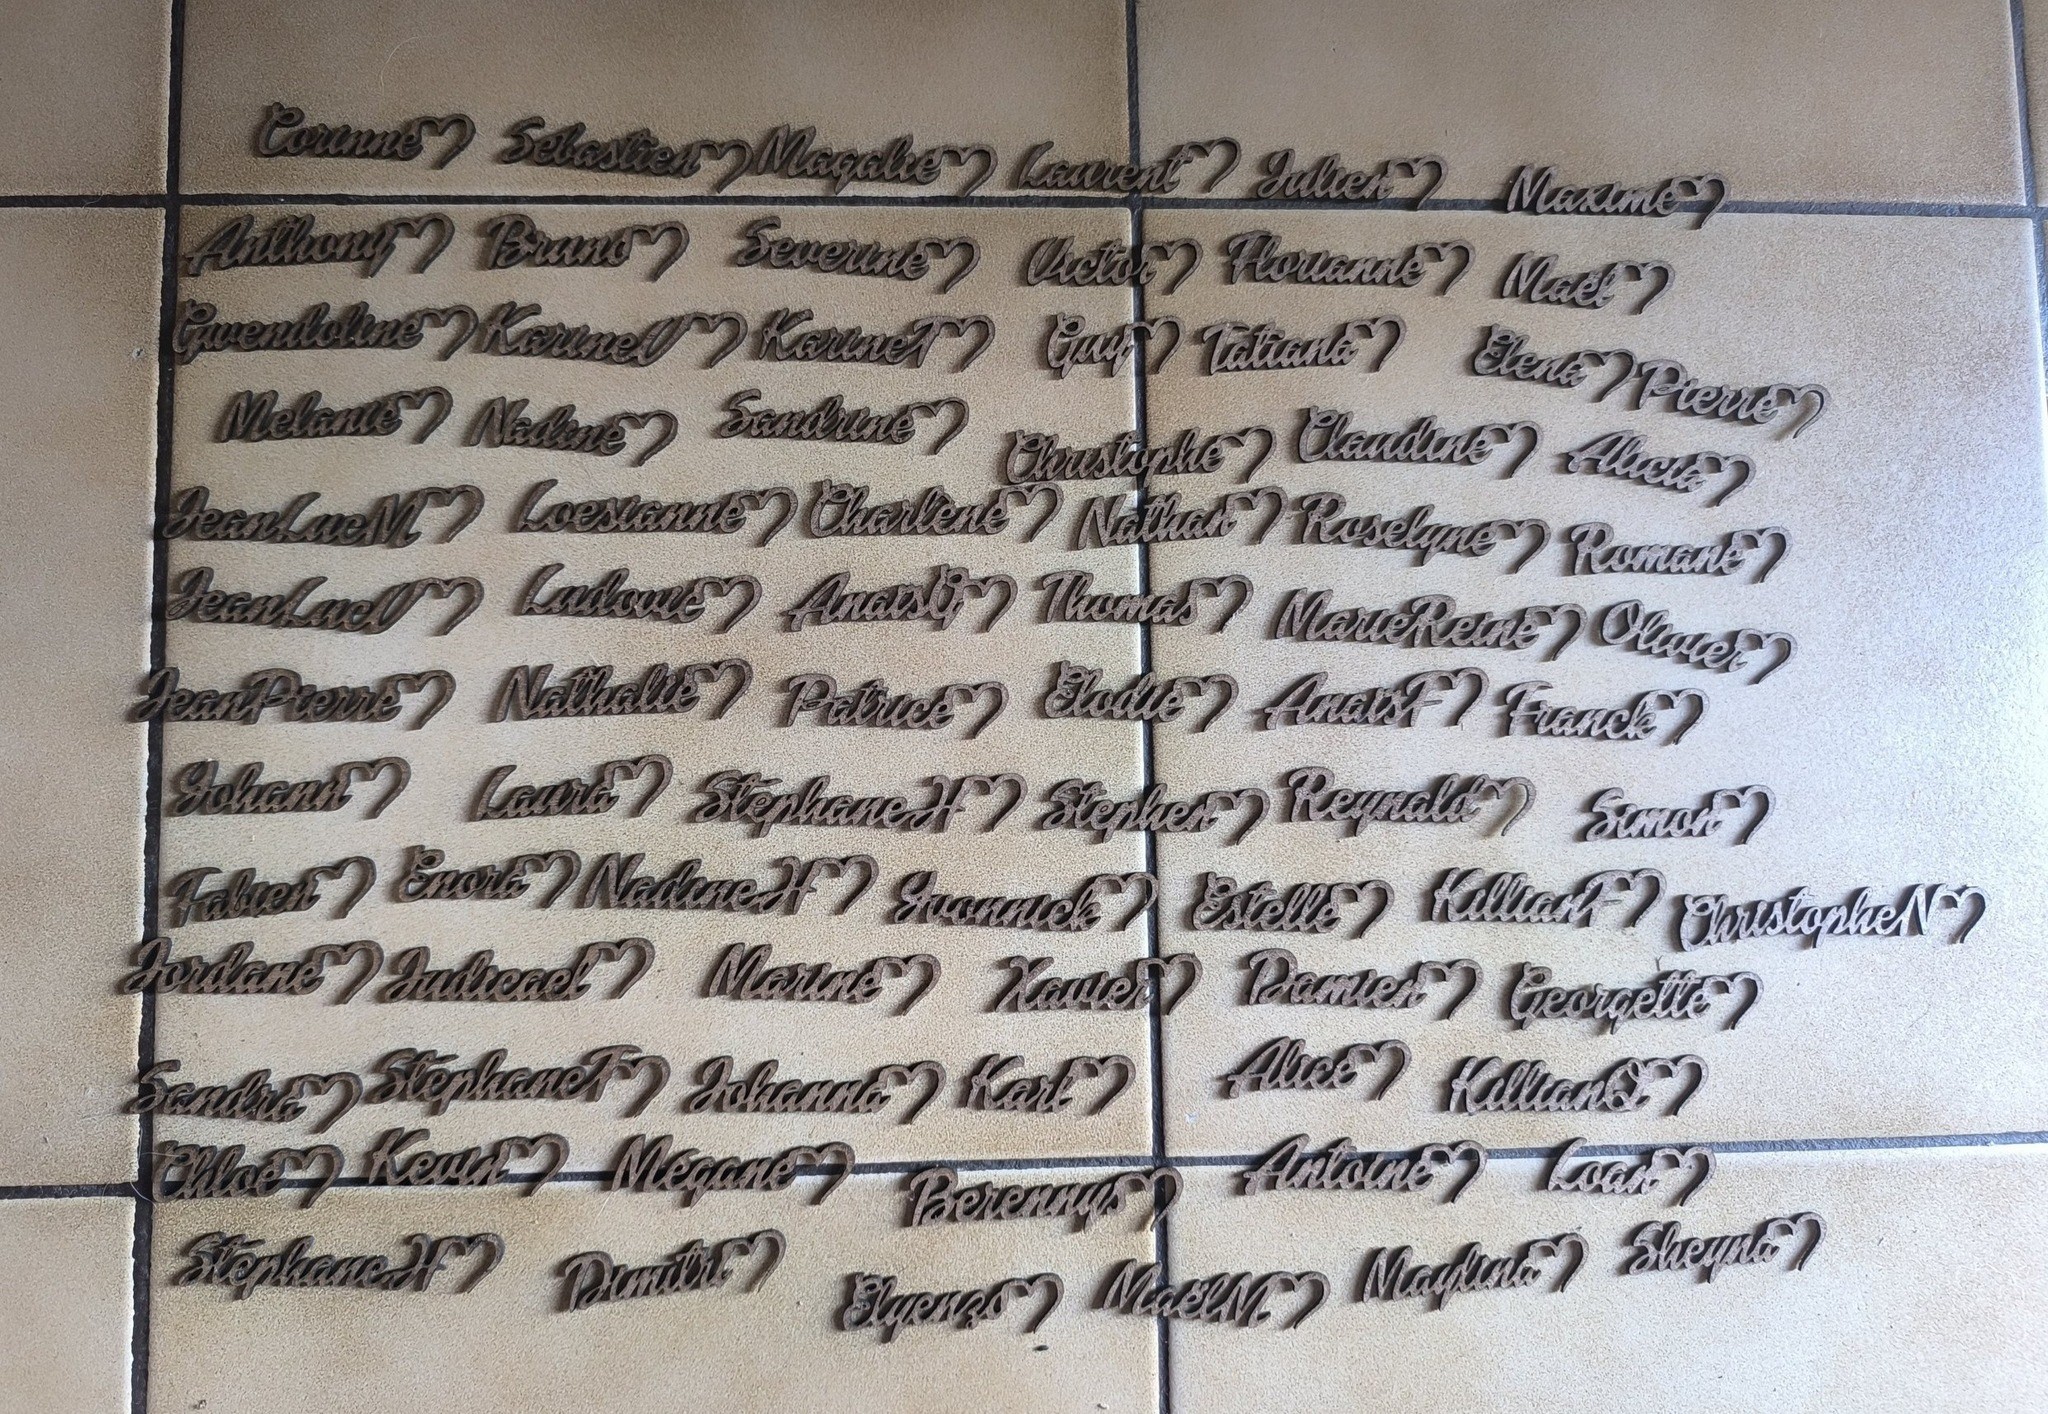 Corinne Sébastien Magalie Laurent Julien Maxime
Anthony Bruno Severine Victor Florianne Maël
Gwendoline KarineV KarineT Guy Tatiana Elena Pierre
Melanie Nadine Sandrine Christophe Claudine Alicia
JeanLucM Loesianne Charlène Nathan Roselyne Romane
JeanLucV Ludovic AnaïsG Thomas MarieReine Olivier
JeanPierre Nathalie Patrice Elodie AnaïsF Franck
Yohann Laura StephaneH Stephen Reynald Simon
Fabien Enora NadineH Yvonnick Estelle KillianF ChristopheN
Jordane Judicael Marine Xavier Damien Georgette
Sandra StephaneF Johanna Karl Alice KillianQ
Chloé Kevin Mégane Berennys Antoine Loan
StephaneH Dimitri Elyenzo MaëlM Maylina Sheyna